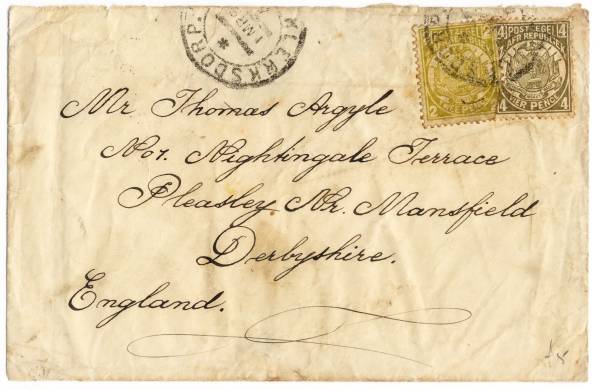 KLERKSDORP.
POSTZEGEL
4 4
VIER PENCE
4 4
Mr Thomas Argyle
No 1. Nightingale Terrace
Pleasley. Nr. Mansfield
Derbyshire.
England.